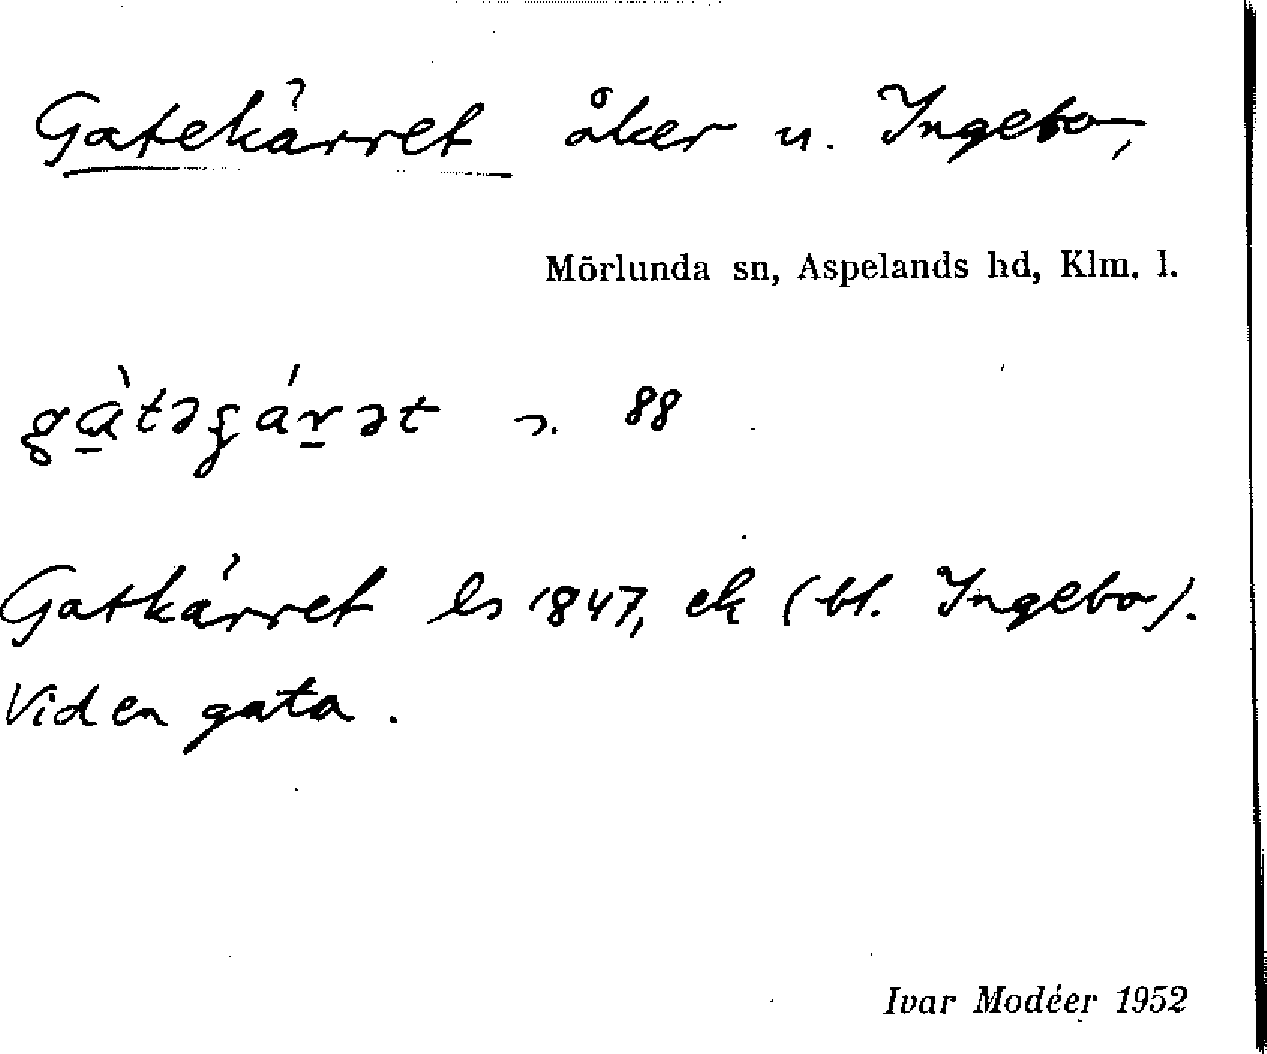 Gatekärret åker u. Ingebo,
Mörlunda sn, Aspelands hd, Klm. l.
88
Gatkärret ls 1847, ek (bl. Ingebo).
Vid en gata.
Ivar Modéer 1952